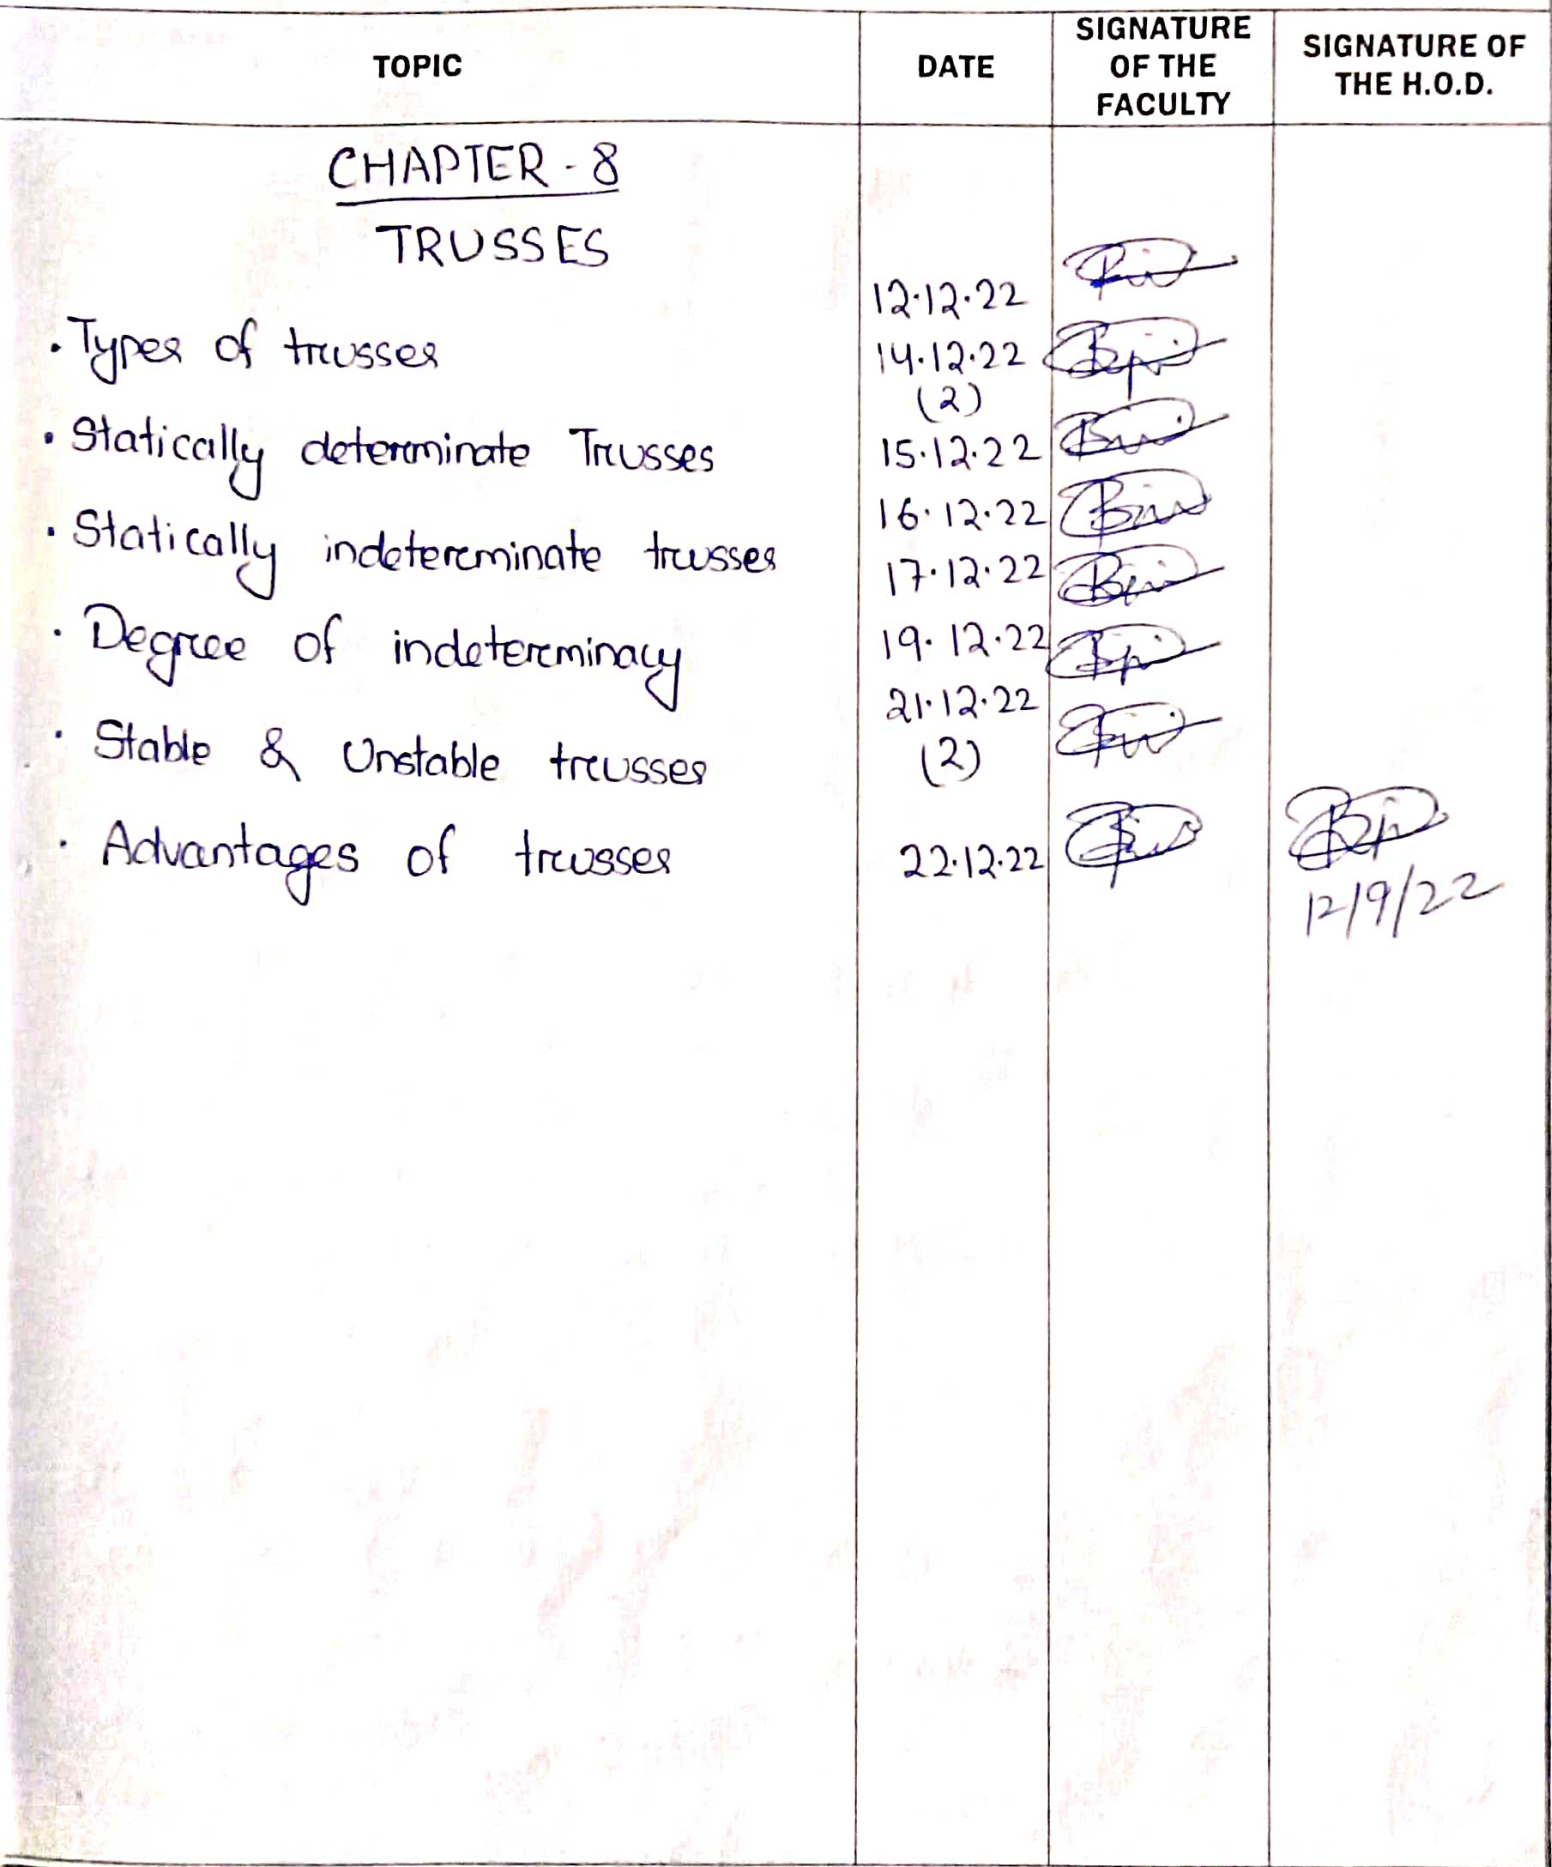 TOPIC
DATE
SIGNATURE OF THE FACULTY
SIGNATURE OF THE H.O.D.
CHAPTER - 8
TRUSSES
12.12.22
• Types of trusses
14.12.22
(2)
• Statically determinate Trusses
15.12.22
16.12.22
• Statically indeterminate trusses
17.12.22
• Degree of indeterminacy
19.12.22
21.12.22
• Stable & Unstable trusses
(2)
• Advantages of trusses
22.12.22
12/9/22